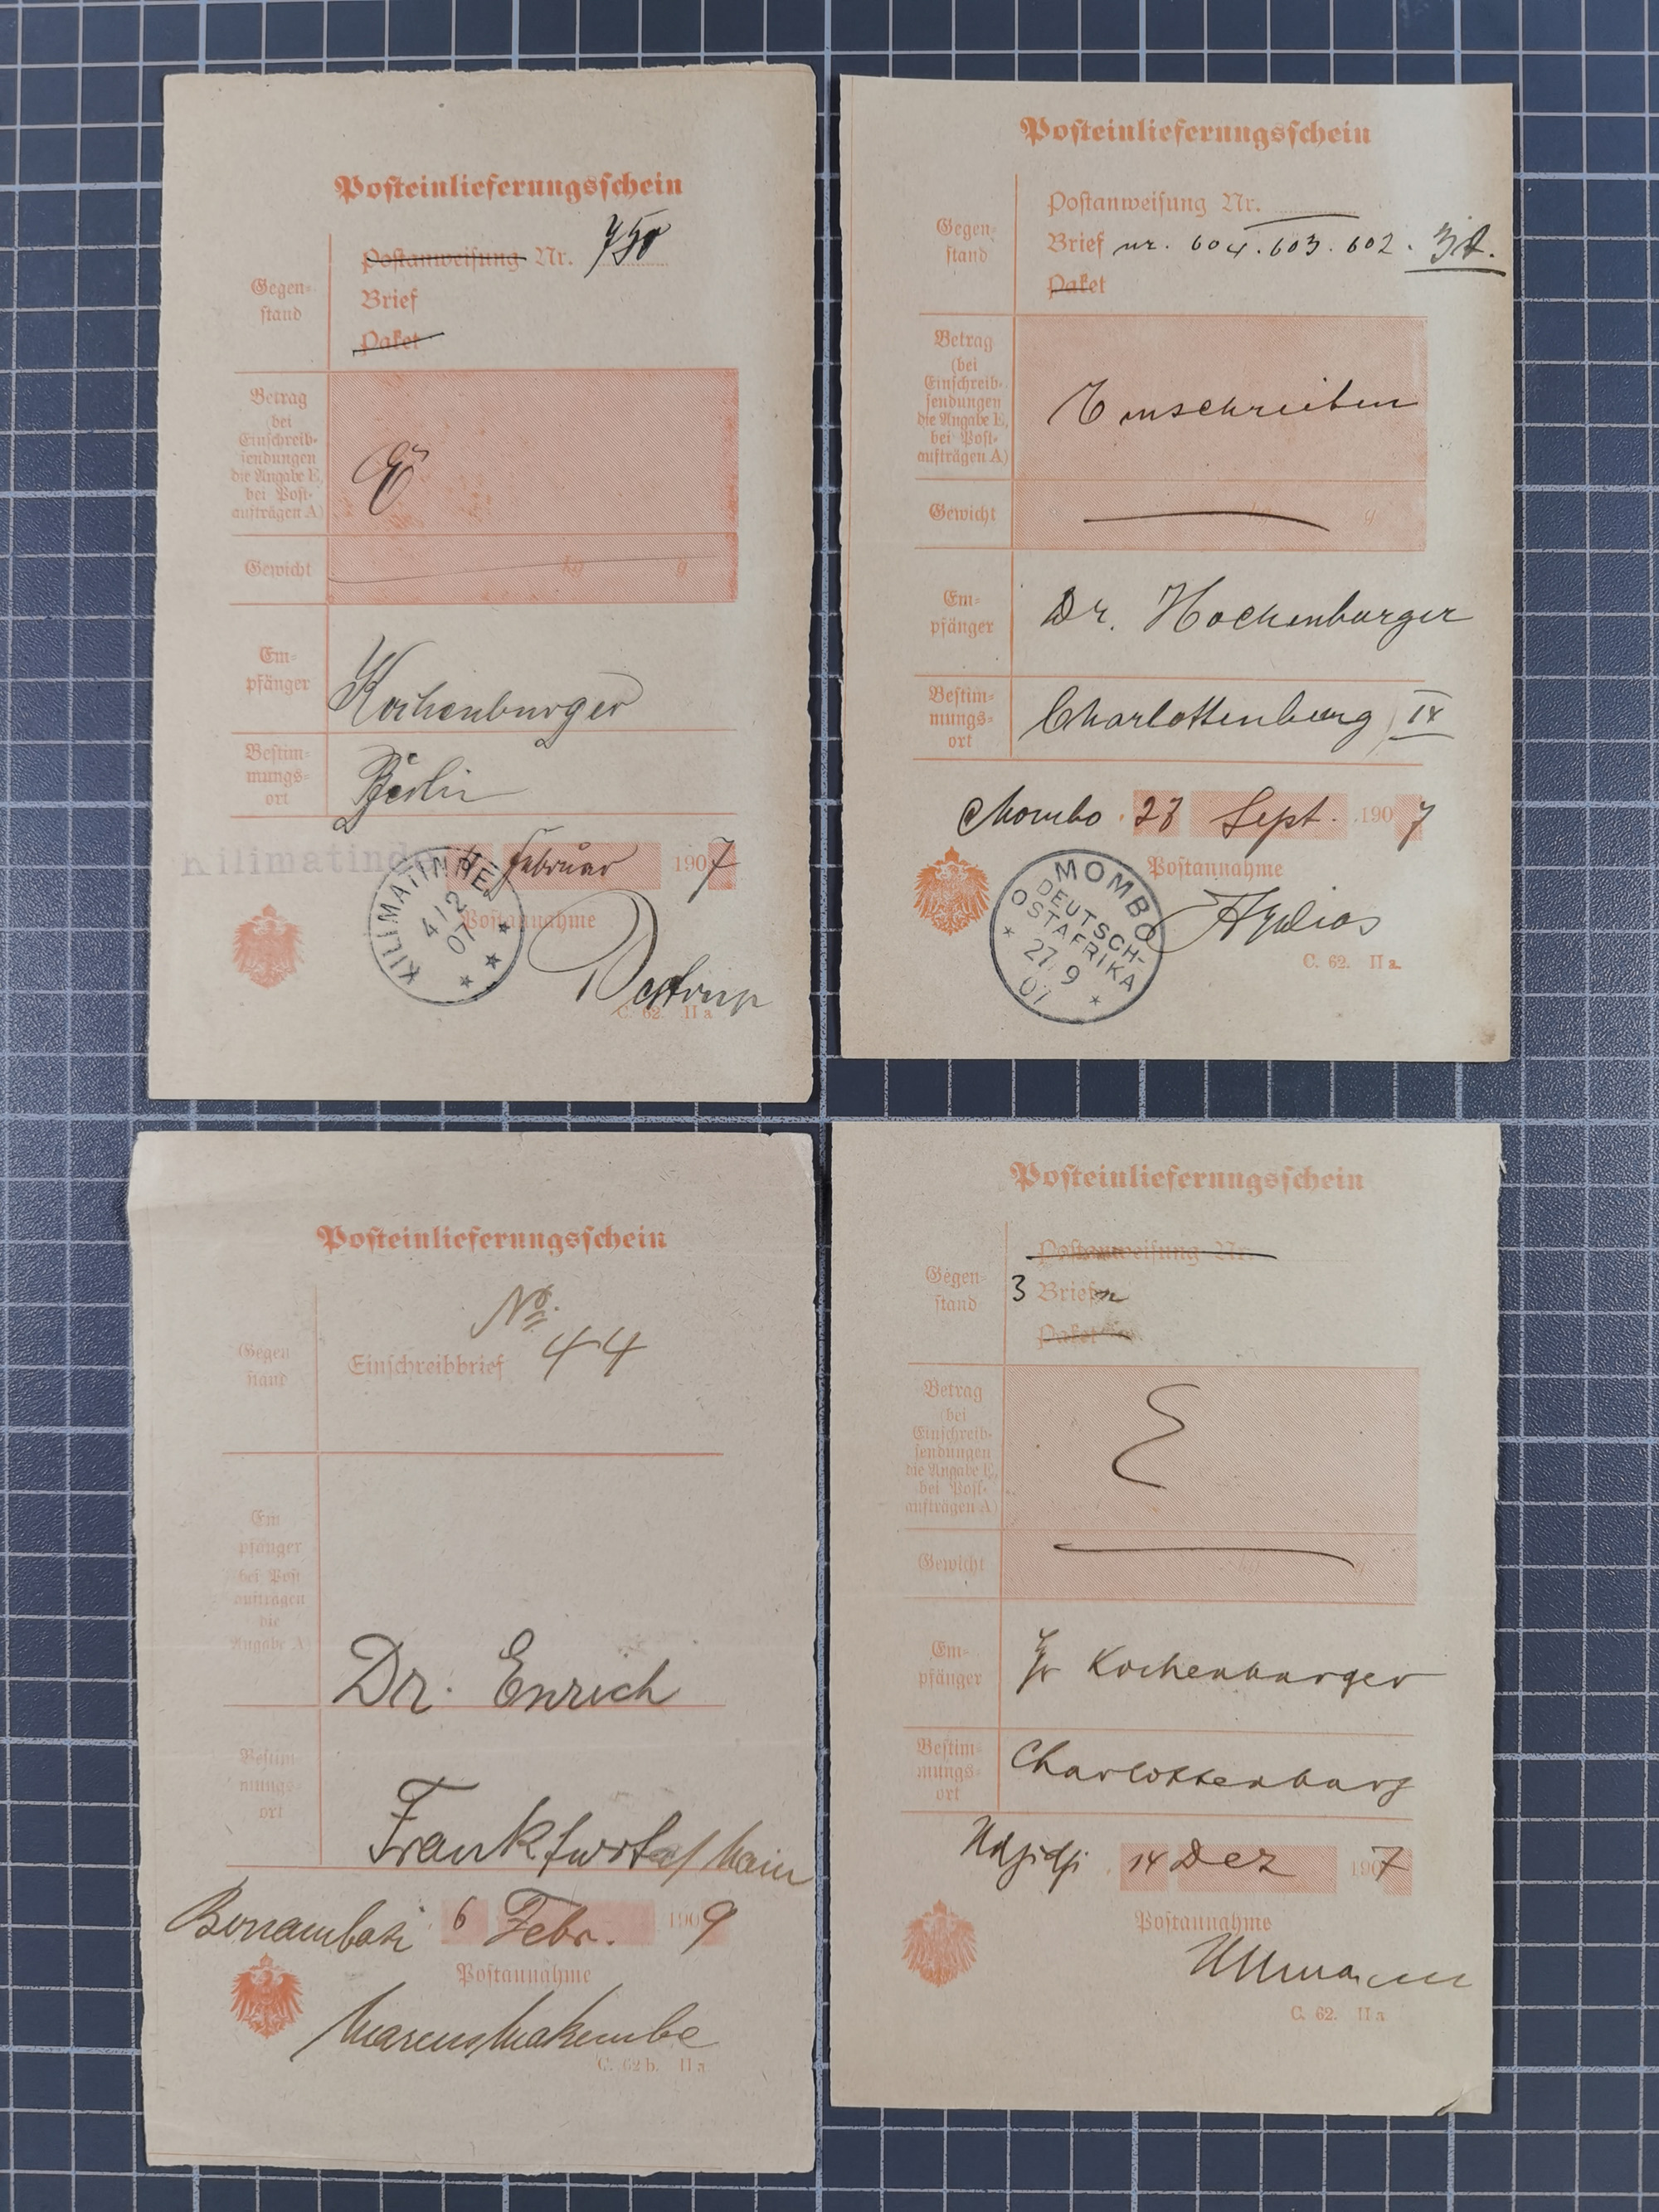 Posteinlieferungsschein
Gegen-
stand
Postanweisung Nr. 750
Brief
Paket
Betrag
bei
Einschreib-
sendungen
die Angabe E,
bei Post-
aufträgen A)
E
Gewicht
kg g
Em-
pfänger
Kochenburger
Bestim-
mungs-
ort
Berlin
Kilimatinde
4 Februar 1907
KILIMATINDE
4/2
07
Postannahme
C. 62. II a
Posteinlieferungsschein
Gegen-
stand
Postanweisung Nr.
Brief nr. 604. 603. 602.
Paket
Betrag
(bei
Einschreib-
sendungen
die Angabe E,
bei Post-
aufträgen A)
Einschreiben
Gewicht
kg g
Em-
pfänger
Dr. Hochenburger
Bestim-
mungs-
ort
Charlottenburg
Mombo 27 Sept. 1907
Postannahme
MOMBO
DEUTSCH-
OSTAFRIKA
27/9
07
C. 62. II a.
Posteinlieferungsschein
Gegen
stand
No. 44
Einschreibbrief
Em
pfänger
bei Post
aufträgen
die
Angabe A)
Dr. Enrich
Bestim
mungs-
ort
Frankfurt a/Main
Bonambasi 6 Febr. 1909
Postannahme
Marcus Makembe
C. 62 b. II a
Posteinlieferungsschein
Gegen-
stand
Postanweisung Nr.
3 Briefe
Paket
Betrag
(bei
Einschreib-
sendungen
die Angabe E,
bei Post-
aufträgen A)
E
Gewicht
kg g
Em-
pfänger
Kochenburger
Bestim-
mungs-
ort
Charlottenburg
Udjidji 14 Dez 1907
Postannahme
Ullmann
C. 62. II a